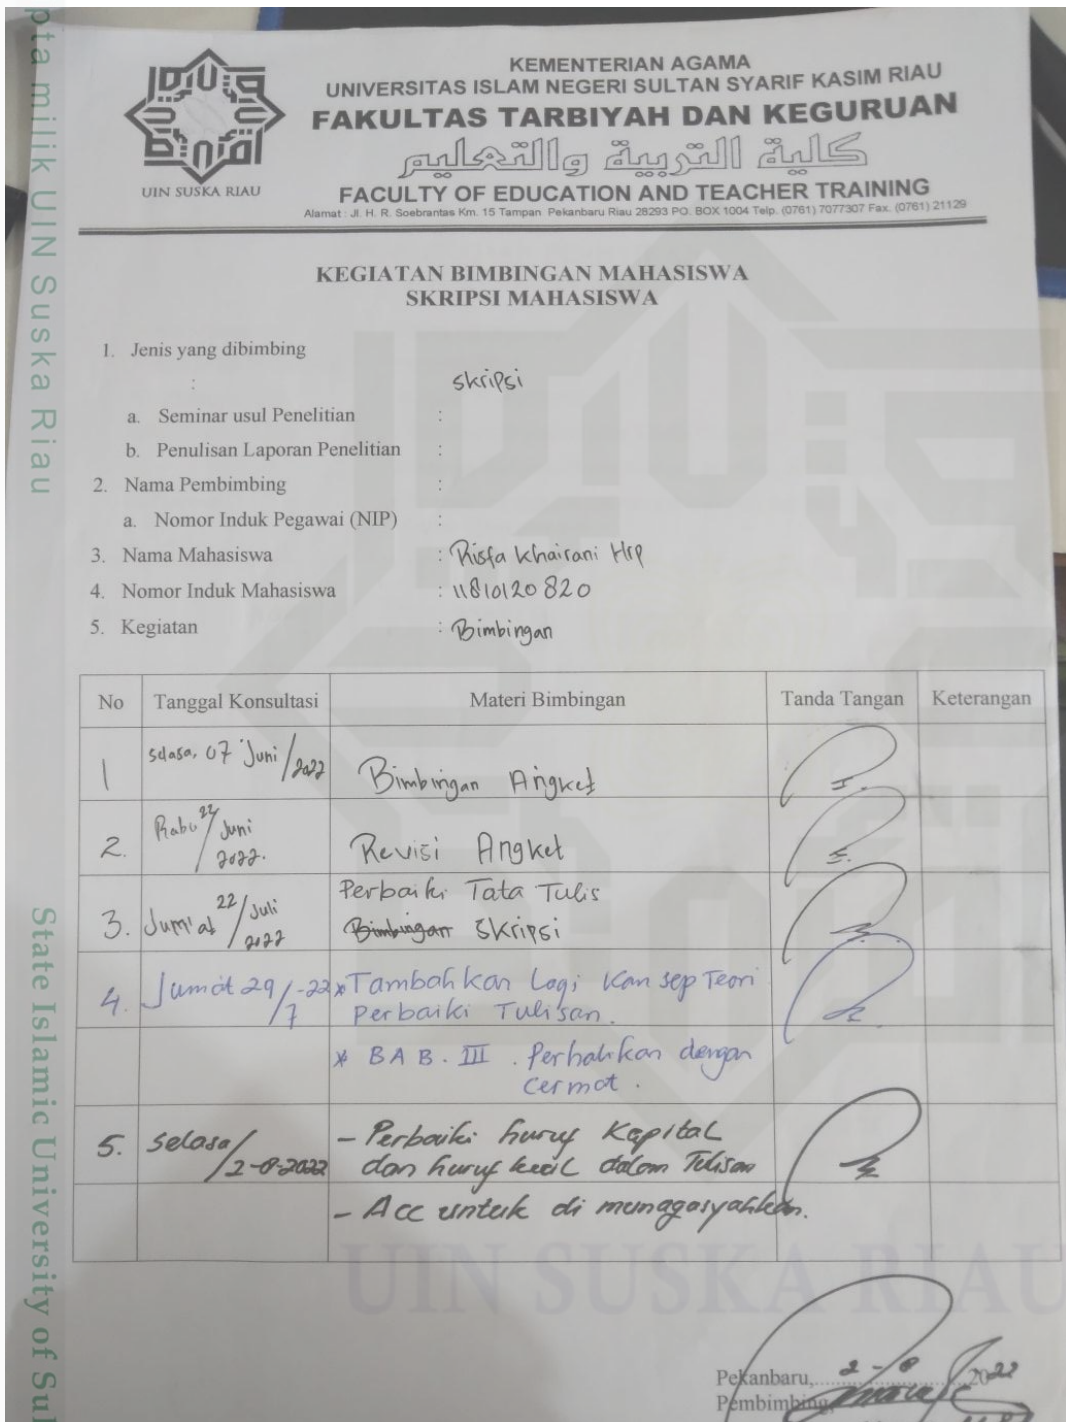 pta milik UIN Suska Riau
State Islamic University of Sul
UIN SUSKA RIAU
KEMENTERIAN AGAMA
UNIVERSITAS ISLAM NEGERI SULTAN SYARIF KASIM RIAU
FAKULTAS TARBIYAH DAN KEGURUAN
كلية التربية والتعليم
FACULTY OF EDUCATION AND TEACHER TRAINING
Alamat : Jl. H. R. Soebrantas Km. 15 Tampan Pekanbaru Riau 28293 PO. BOX 1004 Telp. (0761) 7077307 Fax. (0761) 21129
KEGIATAN BIMBINGAN MAHASISWA
SKRIPSI MAHASISWA
1. Jenis yang dibimbing
: skripsi
a. Seminar usul Penelitian :
b. Penulisan Laporan Penelitian :
2. Nama Pembimbing :
a. Nomor Induk Pegawai (NIP) :
3. Nama Mahasiswa : Risfa Khairani Hrp
4. Nomor Induk Mahasiswa : 11810120820
5. Kegiatan : Bimbingan
No Tanggal Konsultasi Materi Bimbingan Tanda Tangan Keterangan
1 Selasa, 07 Juni/2022 Bimbingan Angket
2. Rabu 22/Juni 2022. Revisi Angket
3. Jum'at 22/Juli 2022 Perbaiki Tata Tulis
Bimbingan Skripsi
4. Jumat 29/7-22 * Tambahkan Lagi Konsep Teori
Perbaiki Tulisan.
* BAB. III. Perhatikan dengan
cermat.
5. Selasa/2-8-2022 - Perbaiki huruf Kapital
dan huruf kecil dalam Tulisan
- Acc untuk di munaqasyahkan.
UIN SUSKA RIAU
Pekanbaru, 2 - 8 2022
Pembimbing,